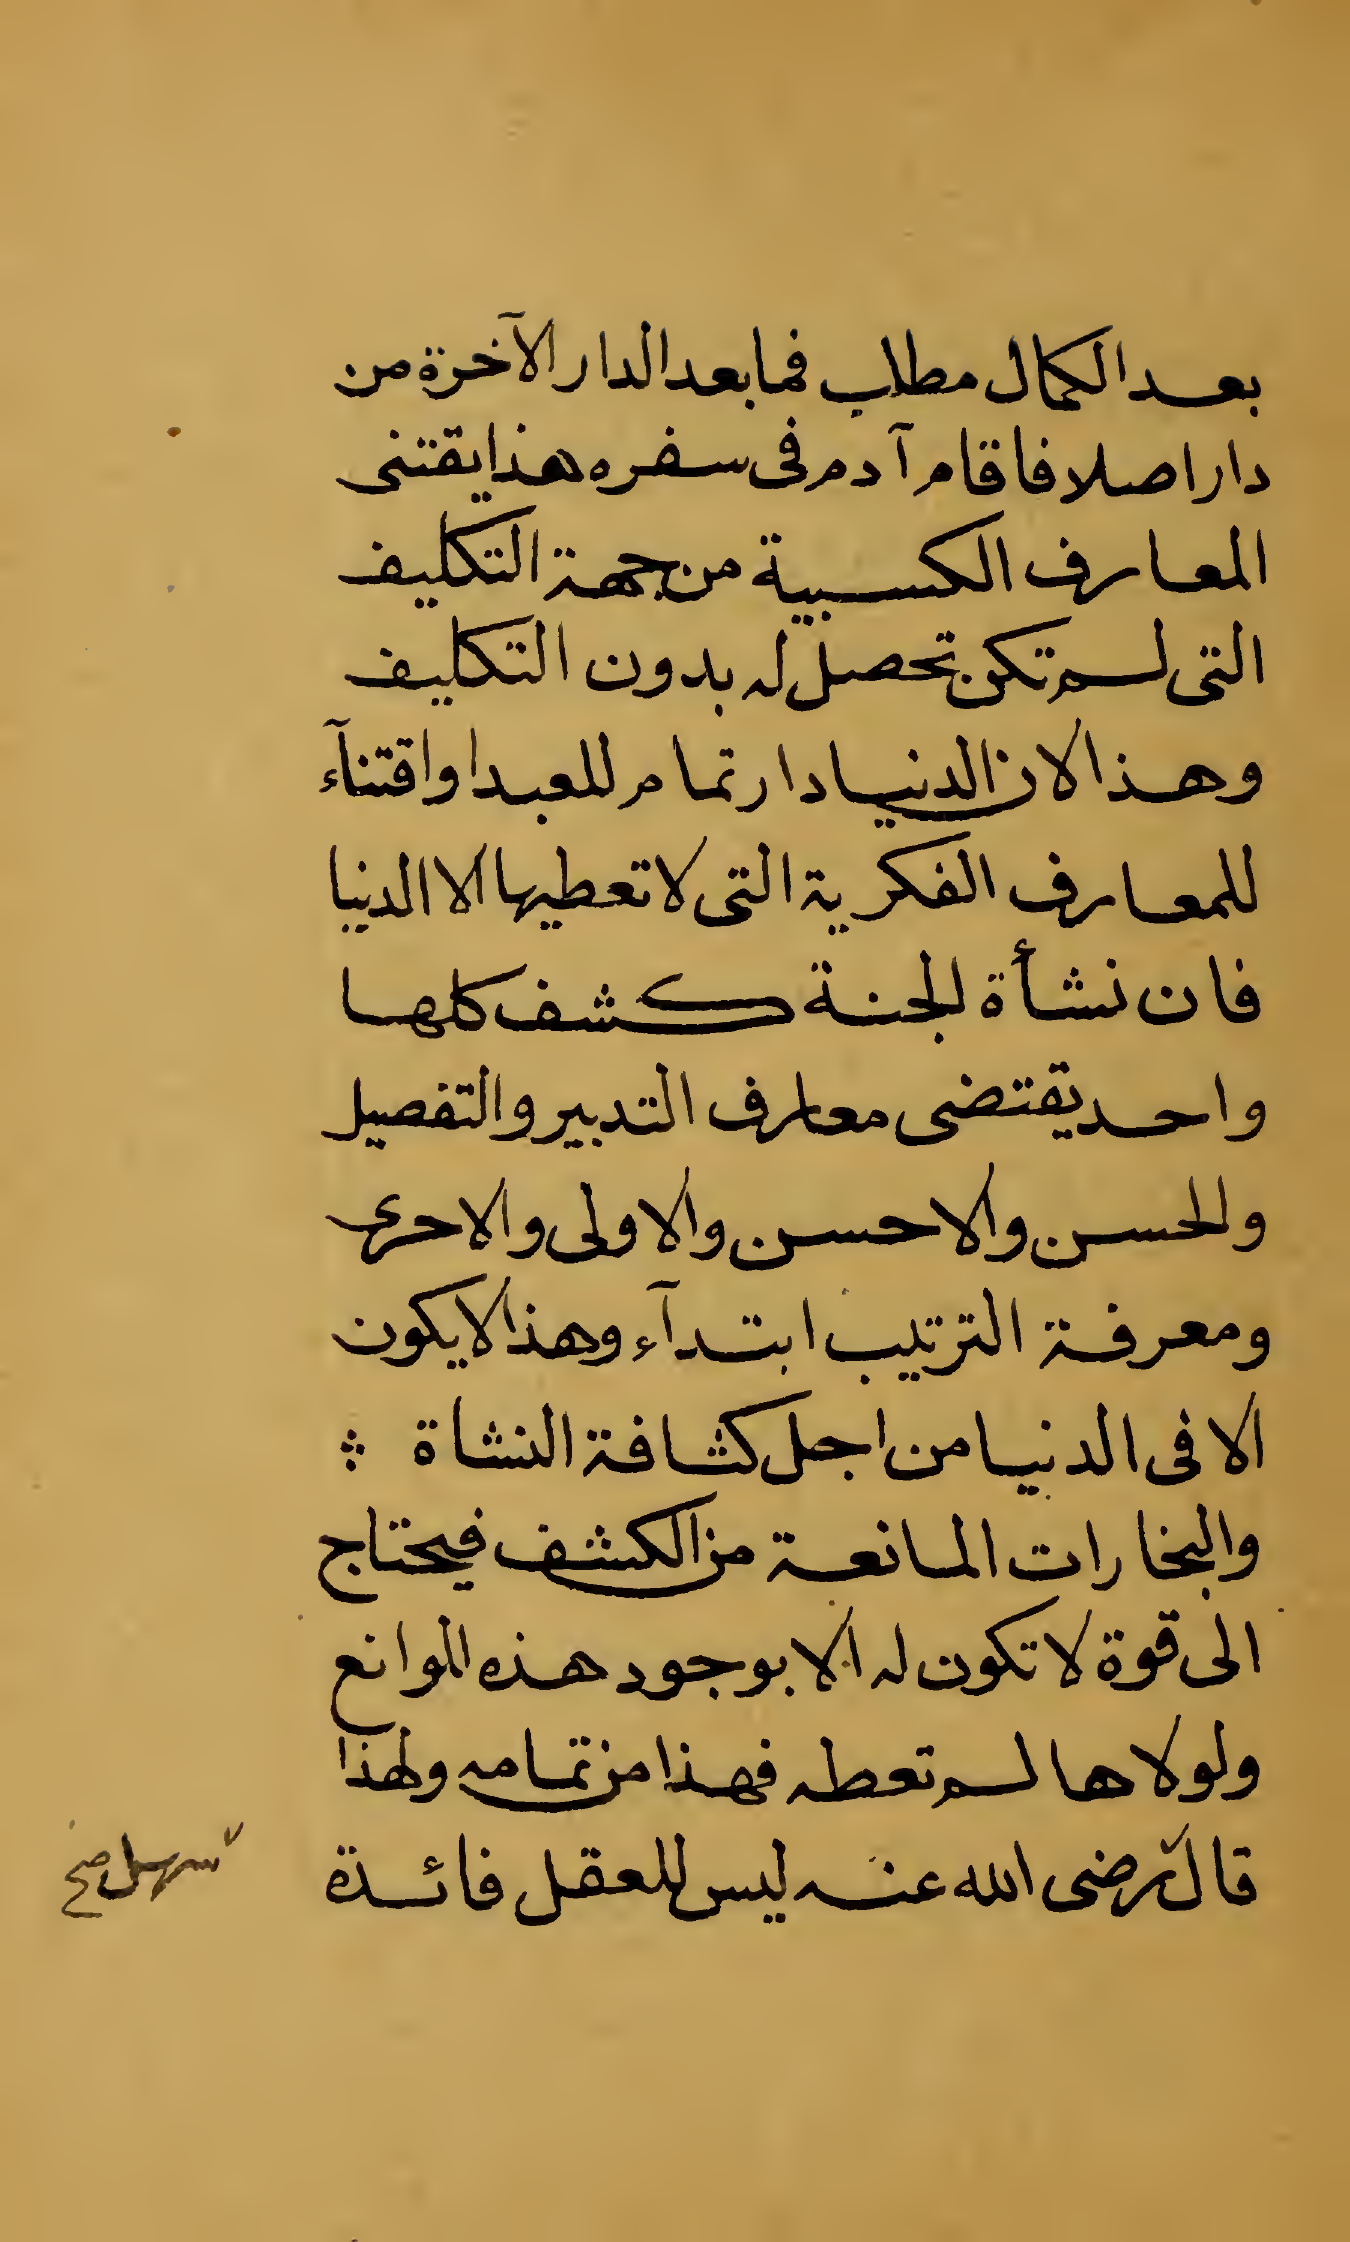 بعد الكمال مطلب فما بعد الدار الآخرة من
دار اصلا فاقام آدم فى سفره هذا يقتنى
المعارف الكسبية من جهة التكليف
التى لم تكن تحصل له بدون التكليف
وهذا لان الدنيا دار تمام للعبد واقتنآء
للمعارف الفكرية التى لا تعطيها الا الدنيا
فان نشأة الجنة كشف كلها
واحد يقتضى معارف التدبير والتفصيل
والحسن والاحسن والاولى والاحرى
ومعرفة الترتيب ابتدآء وهذا لا يكون
الا فى الدنيا من اجل كثافة النشاة
والبخارات المانعة من الكشف فيحتاج
الى قوة لا تكون له الا بوجود هذه الموانع
ولولاها لم تعطه فهذا من تمامه ولهذا
قال رضى الله عنه ليس للعقل فائدة
سهل صح